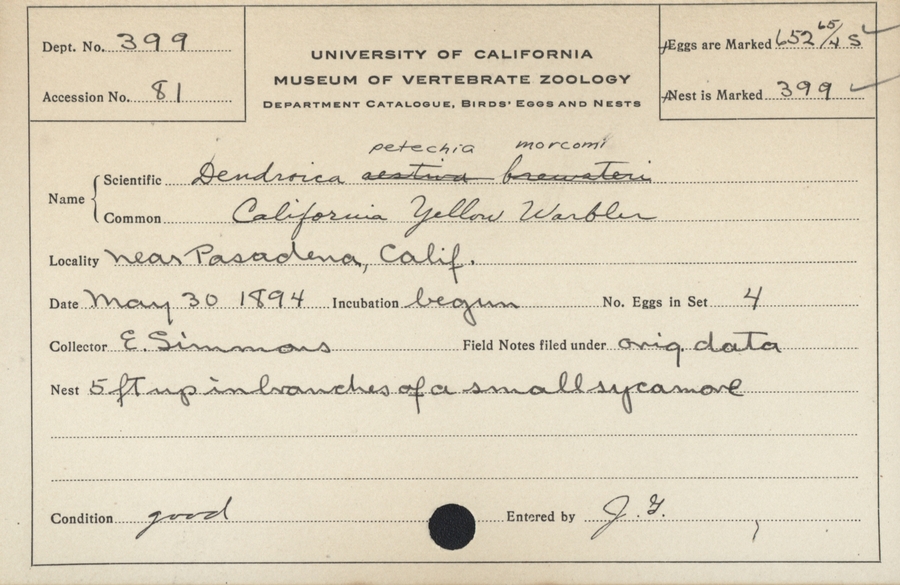 Dept. No. 399
Accession No. 81
UNIVERSITY OF CALIFORNIA
MUSEUM OF VERTEBRATE ZOOLOGY
DEPARTMENT CATALOGUE, BIRDS' EGGS AND NESTS
Eggs are Marked 652 65/4 S
Nest is Marked 399
petechia morcomi
Name
Scientific Dendroica aestiva brewsteri
Common California Yellow Warbler
Locality near Pasadena, Calif.
Date May 30 1894 Incubation begun No. Eggs in Set 4
Collector E. Simmons Field Notes filed under orig. data
Nest 5 ft up in branches of a small sycamore
Condition good Entered by J. G.